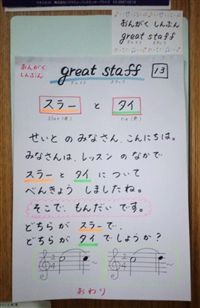 おんがく しんぶん
great staff
おんがく
しんぶん
great staff
13
スラー と タイ
せいとの みなさん、こんにちは。
みなさんは、レッスン の なかで
スラー と タイ に ついて
べんきょう しましたね。
そこで、もんだい です。
どちらが スラー で、
どちらが タイ でしょうか?
おわり